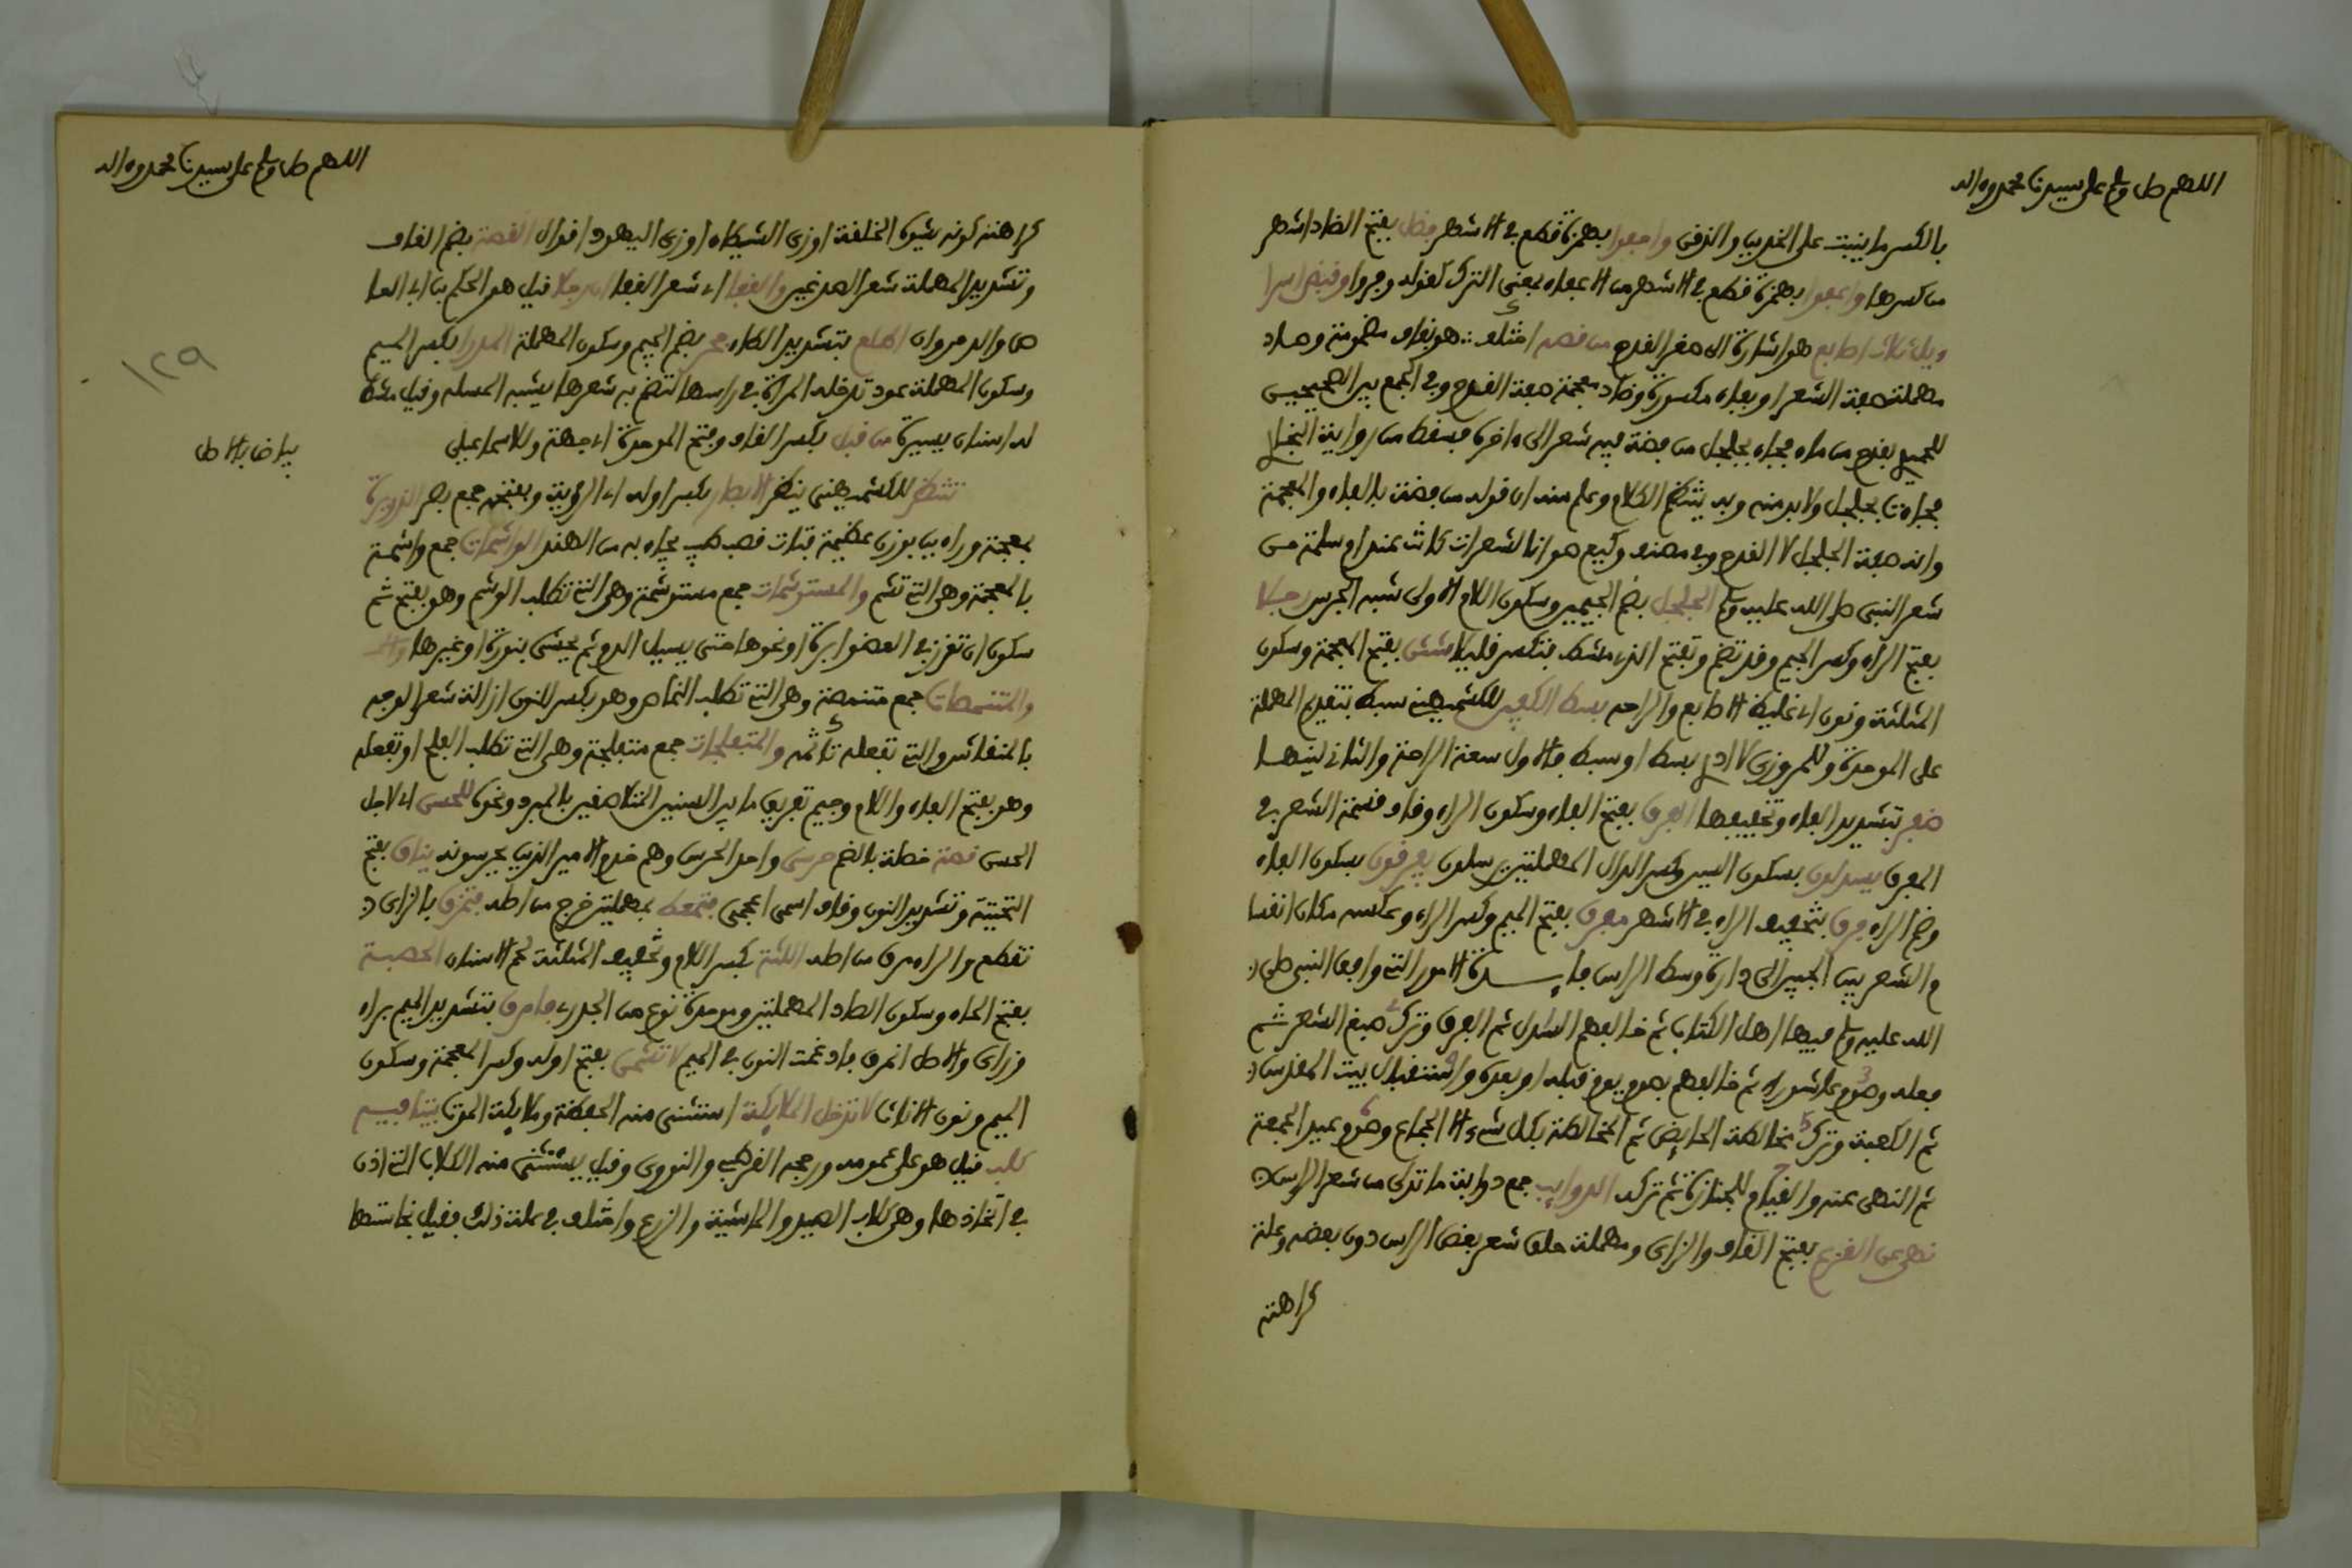 اللهم صل وسلم على سيدنا محمد وءاله
بالكسر ما ينبت على الخدين والذقن واحفوا بهمزة قطع في الاشهر فضل بفتح الضاد اشهر
من كسرها واعفوا بهمزة قطع في الاشهر من الاعفاء بمعنى الترك كقوله وفروا وقبض اسرا
ويل ثلاث اصابع هو اشارة الى صغر القدح من قصة اختلف هو بقاف مضمومة وصاد
مهملة صفة الشعر او بفاء مكسورة وضاد معجمة صفة القدح وفي الجمع بين الصحيحين
للحميدي بقدح من ماء فجاء بجلجل من فضة فيه شعر الى ءاخره فسقط من رواية البخاري
فجاءت بجلجل ولابد منه وبه ينتظم الكلام وعلم منه ان قوله من فضة بالفاء والمعجمة
وانه صفة الجلجل لا القدح وفي مصنف وكيع هو ان الشعرات كانت عند ام سلمة من
شعر النبي صلى الله عليه وسلم الجلجل بضم الجيمين وسكون اللام الاولى شبه الجرس رجلا
بفتح الراء وكسر الجيم وقد تضم وتفتح الذي مشط فتكسر قليلا شثن بفتح المعجمة وسكون
المثلثة ونون اي غليظ الاصابع والراحة بسط الكفين للكشميهني سبط بتقديم المهملة
على الموحدة وللمروزي لا ادري بسط او سبط فالاول سعة الراحة والثاني لينها
ضفر بتشديد الفاء وتخفيفها الفرق بفتح الفاء وسكون الراء وقاف قسمة الشعر في
المفرق يسدلون بسكون السين وكسر الدال المهملتين يرسلون يفرقون بسكون الفاء
وضم الراء فرق بتخفيف الراء في الاشهر مفرق بفتح الميم وكسر الراء وعكسه مكان انقسا
م الشعر من الجبين الى دارة وسط الراس فائدة الامور التي وافق النبي صلى
الله عليه وسلم فيها اهل الكتاب ثم خالفهم السدل ثم الفرق وترك صبغ الشعر ثم
فعله وصوم عاشوراء ثم خالفهم بصوم يوم قبله او بعده واستقبال بيت المقدس
ثم الكعبة وترك مخالطة الحائض ثم المخالطة بكل شيء الا الجماع وصوم عيد الجمعة
ثم النهي عنه والقيام للجنازة ثم تركه الذوايب جمع ذوابة ما تدلى من شعر الراس
نهى عن القزع بفتح القاف والزاي ومهملة حلق شعر بعض الراس دون بعضه وعلة
كراهته
اللهم صل وسلم على سيدنا محمد وءاله
كراهته كونه يشوه الخلقة او زي الشيطان او زي اليهود اقوال القصة بضم القاف
وتشديد المهملة شعر الصدغين والقفا اي شعر القفا ان رجلا قيل هو الحكم بن ابي العا
ص والد مروان اطلع بتشديد الطاء جحر بضم الجيم وسكون المهملة المدرا بكسر الميم
وسكون المهملة عود تدخله المراة في راسها لتضم به شعرها يشبه المسلة وقيل مشط
له اسنان يسيرة من قبل بكسر القاف وفتح الموحدة اي جهة وللاسماعيلي
بياض بالاصل
تنتظر للكشميهني ينظر الابصار بكسر اوله اي الرؤية وبفتحه جمع بصر الذريرة
بمعجمة وراءين بوزن عظيمة فتات قصب طيب يجاء به من الهند الواشمات جمع واشمة
بالمعجمة وهي التي تشم والمستوشمات جمع مستوشمة وهي التي تطلب الوشم وهو بفتح ثم
سكون ان تغرز في العضو ابرة او نحوها حتى يسيل الدم ثم يحشى بنورة او غيرها
والمتنمصات جمع متنمصة وهي التي تطلب النماص وهو بكسر النون ازالة شعر الوجه
بالمنقاش والتي تفعله نامصة والمتفلجات جمع متفلجة وهي التي تطلب الفلج او تفعله
وهو بفتح الفاء واللام وجيم تفريق ما بين السنين المتلاصقين بالمبرد ونحوه للحسن اي لاجل
الحسن قصة خصلة بالضم حرسي واحد الحرس وهم خدم الامير الذين يحرسونه يناق بفتح
التحتية وتشديد النون وقاف اسم اعجمي فتمعط بمهملتين خرج من اصله فتمزق بالزاي
تقطع والراء مرق من اصله اللثة بكسر اللام وتخفيف المثلثة لحم الاسنان الحصبة
بفتح الحاء وسكون الصاد المهملتين وموحدة نوع من الجدري فامرق بتشديد الميم براء
وزاي والاصل انمرق فادغمت النون في الميم لا تشمن بفتح اوله وكسر المعجمة وسكون
الميم ونون الاناث لا تدخل الملايكة استثنى منه الحفظة وملايكة الموت بيتا فيه
كلب قيل هو على عمومه ورجحه القرطبي والنووي وقيل يستثنى منه الكلاب التي اذن
في اتخاذها وهي كلاب الصيد والماشية والزرع واختلف في علة ذلك فقيل نجاستها
١٢٩